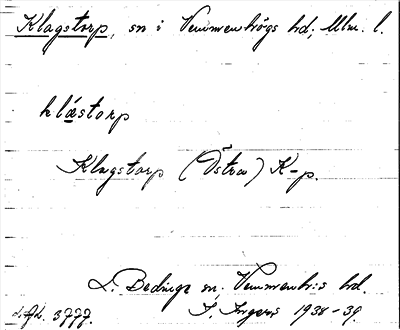 Klagstorp, sn i Vemmenhögs hd; Mlm. l.
klástorp
Klagstorp (Östra) K-p.
L. Bedinge sn. Vemmenh:s hd.
3777. I. Ingers 1938-39.